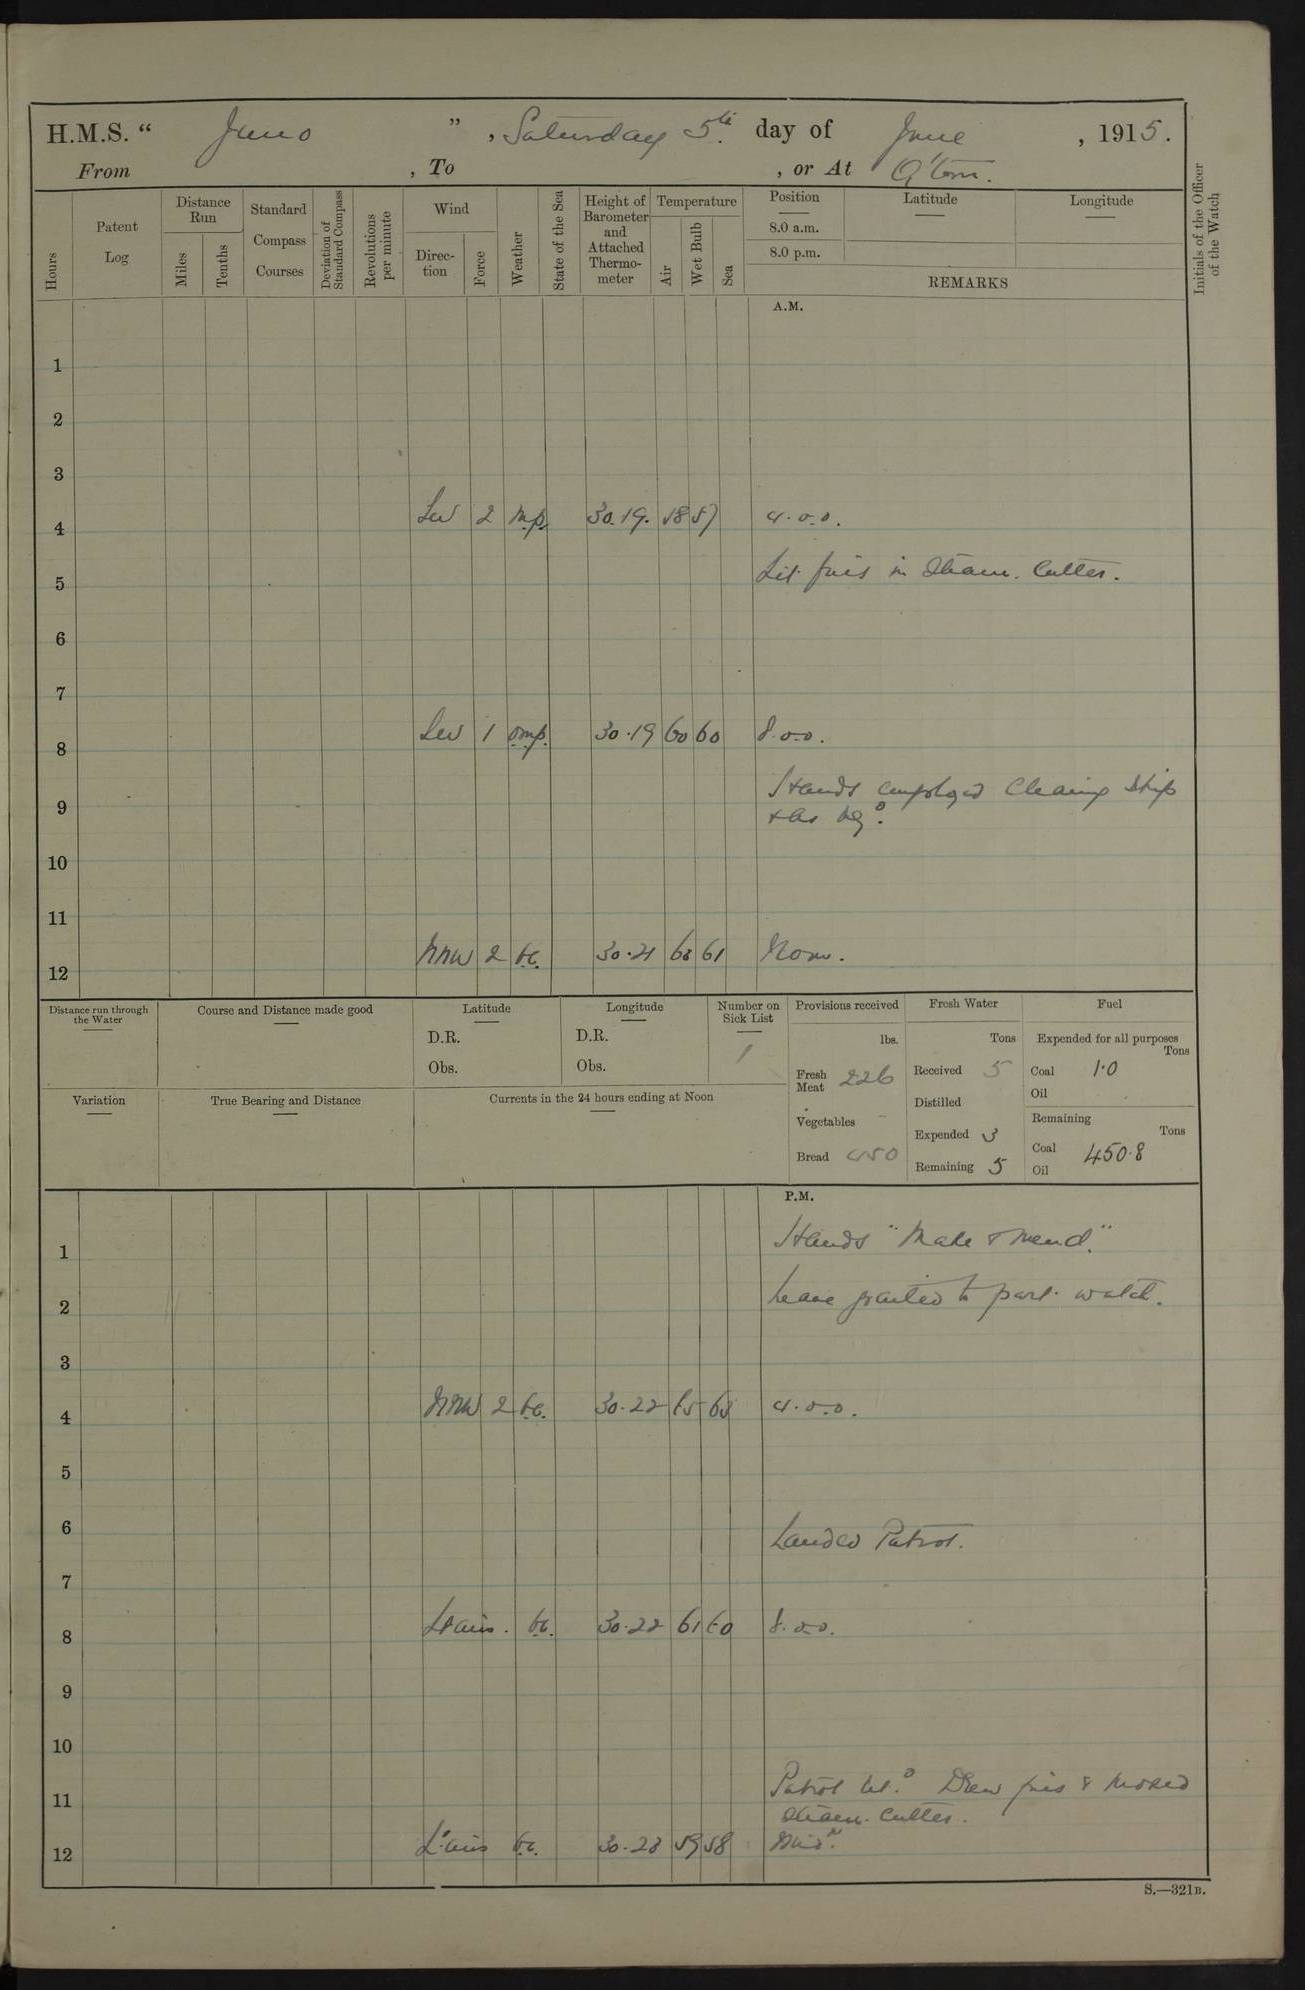 H.M.S. “ Juno ” , Saturday 5th day of June , 1915.
From , To , or At Q'town.
Hours
Patent Log
Distance Run
Miles
Tenths
Standard Compass Courses
Deviation of Standard Compass
Revolutions per minute
Wind
Direction
Force
Weather
State of the Sea
Height of Barometer and Attached Thermometer
Temperature
Air
Wet Bulb
Sea
Position
8.0 a.m.
8.0 p.m.
Latitude
Longitude
REMARKS
Initials of the Officer of the Watch
A.M.
1
2
3
4 SW 2 m.p. 30.19. 58 57 4.0.0.
Lit fires in Steam Cutter.
5
6
7
8 SW 1 omp. 30.19 60 60 8.0.0.
Hands employed Cleaning Ship
9
10
11
12 NNW 2 bc. 30.21 63 61 Noon.
Distance run through the Water
Course and Distance made good
Latitude
D.R.
Obs.
Longitude
D.R.
Obs.
Number on Sick List
1
Provisions received
lbs.
Fresh Meat 226
Vegetables –
Bread 450
Fresh Water
Tons
Received 5
Distilled
Expended 3
Remaining 5
Fuel
Expended for all purposes
Tons
Coal 1.0
Oil
Remaining
Tons
Coal 450.8
Oil
Variation
True Bearing and Distance
Currents in the 24 hours ending at Noon
P.M.
Hands "Make & Mend."
1
Leave granted to part watch.
2
3
4 NNW 2 bc. 30.22 65 63 4.0.0.
5
6
Landed Patrol.
7
8 Lt airs. bc. 30.22 61 60 8.0.0.
9
10
Patrol retd. Drew fires & moored
11
Steam Cutter.
12 Lt airs bc. 30.23 59 58 Midt.
S.—321B.